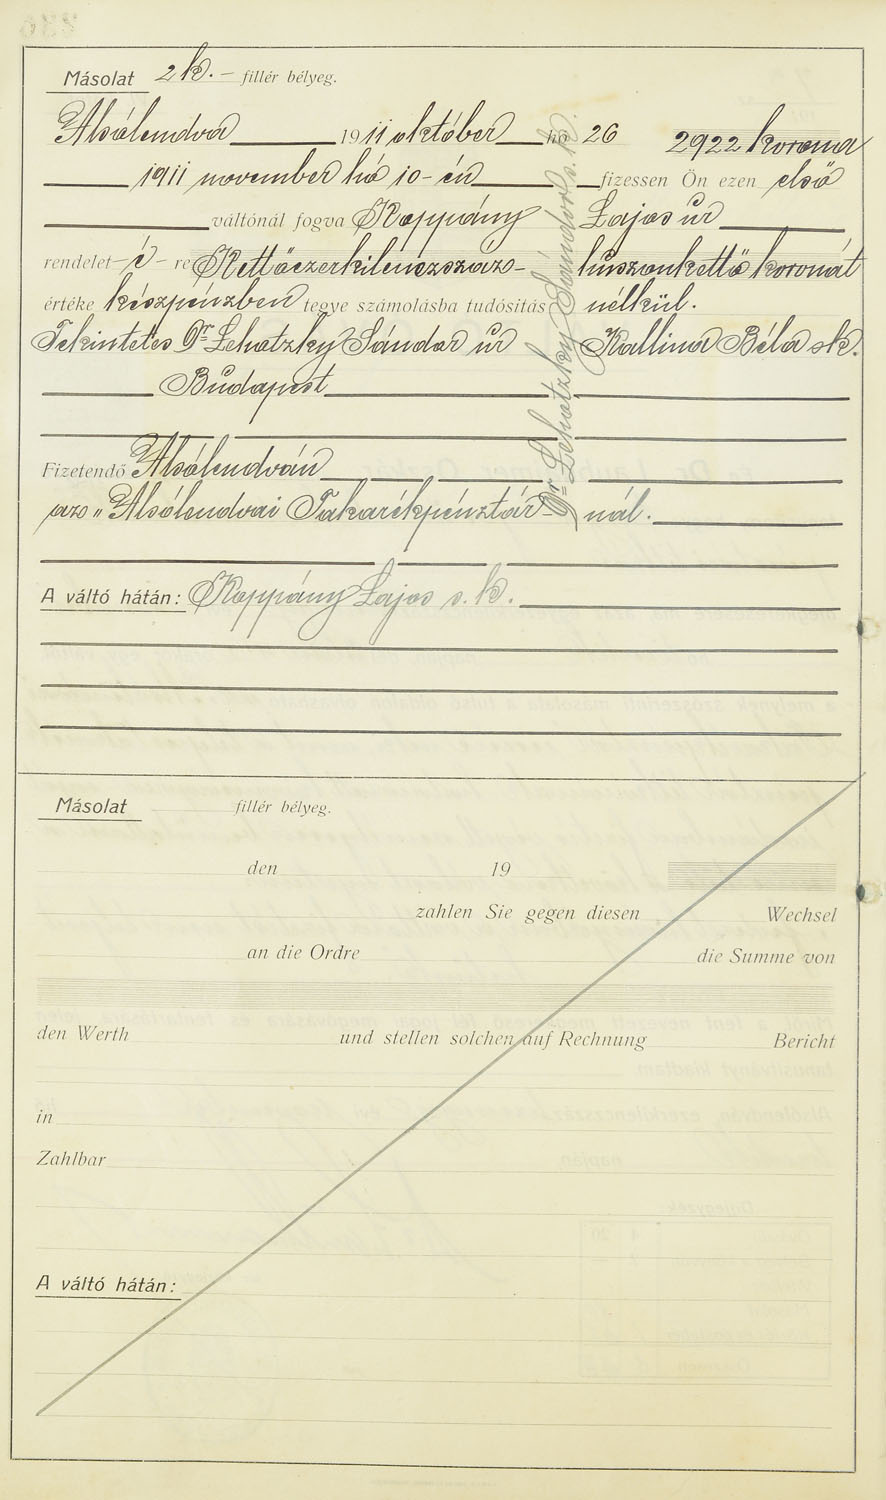 Másolat 2 k. – fillér bélyeg.
Alsólendva 1911 október hó 26 2922 korona
1911 november hó 10-én fizessen Ön ezen első
váltónál fogva Koppány Lajos úr
rendelet-é-re Kettőezerkilenczszázhuszonkettő koronát
értéke készpénzben tegye számolásba tudósitás nélkül.
Tekintetes Dr Lehotzky Sándor úr Kallina Béla sk.
Budapest
Dr Lehotzky Sándor s. k.
Fizetendő Alsólendván
az „Alsólendvai Takarékpénztár-nál.
A váltó hátán: Koppány Lajos s. k.
Másolat fillér bélyeg.
den 19
zahlen Sie gegen diesen Wechsel
an die Ordre die Summe von
den Werth und stellen solchen auf Rechnung Bericht
in
Zahlbar
A váltó hátán: